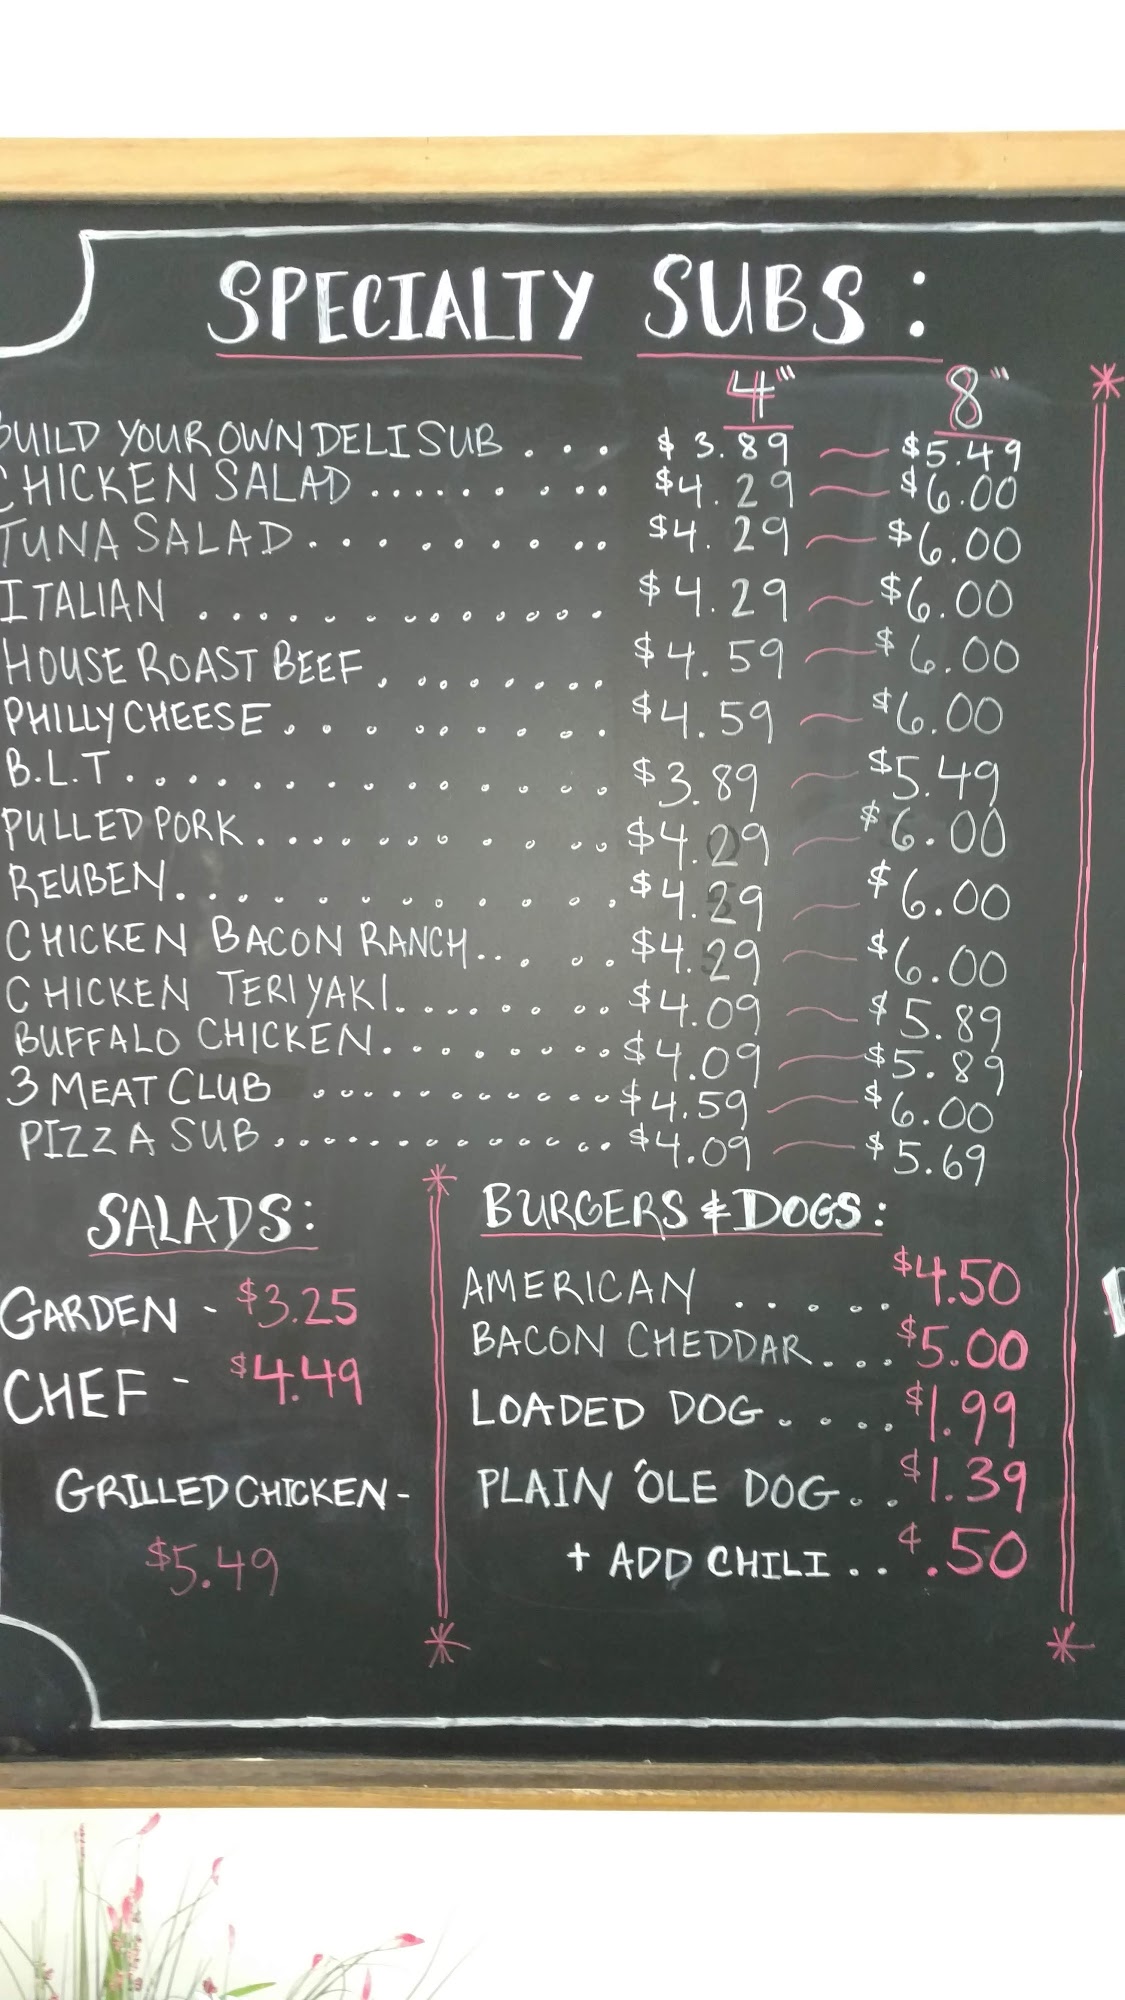 SPECIALTY SUBS:
4" 8"
BUILD YOUR OWN DELI SUB ... $3.89 ~ $5.49
CHICKEN SALAD ......... $4.29 ~ $6.00
TUNA SALAD ......... $4.29 ~ $6.00
ITALIAN .............. $4.29 ~ $6.00
HOUSE ROAST BEEF ........ $4.59 ~ $6.00
PHILLY CHEESE ......... $4.59 ~ $6.00
B.L.T .............. $3.89 ~ $5.49
PULLED PORK ............ $4.29 ~ $6.00
REUBEN ............. $4.29 ~ $6.00
CHICKEN BACON RANCH ...... $4.29 ~ $6.00
CHICKEN TERIYAKI ......... $4.09 ~ $5.89
BUFFALO CHICKEN ......... $4.09 ~ $5.89
3 MEAT CLUB ............. $4.59 ~ $6.00
PIZZA SUB ............. $4.09 ~ $5.69
SALADS:
GARDEN - $3.25
CHEF - $4.49
GRILLED CHICKEN -
$5.49
BURGERS & DOGS:
AMERICAN ..... $4.50
BACON CHEDDAR .... $5.00
LOADED DOG .... $1.99
PLAIN 'OLE DOG .. $1.39
+ ADD CHILI .. ¢.50